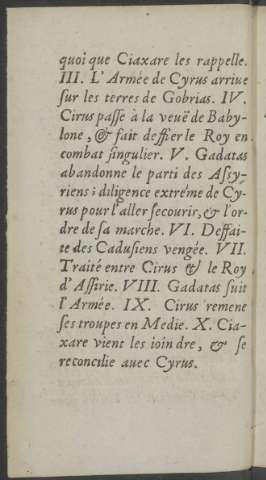 quoi que Ciaxare les rappelle.
III. L'Armée de Cyrus arriue
sur les terres de Gobrias. IV.
Cirus passe à la veuë de Baby-
lone, & fait deffier le Roy en
combat singulier. V. Gadatas
abandonne le parti des Assy-
riens; diligence extréme de Cy-
rus pour l'aller secourir, & l'or-
dre de sa marche. VI. Deffai-
te des Cadusiens vengée. VII.
Traité entre Cirus & le Roy
d'Assirie. VIII. Gadatas suit
l'Armée. IX. Cirus remene
ses troupes en Medie. X. Cia-
xare vient les ioindre, & se
reconcilie auec Cyrus.